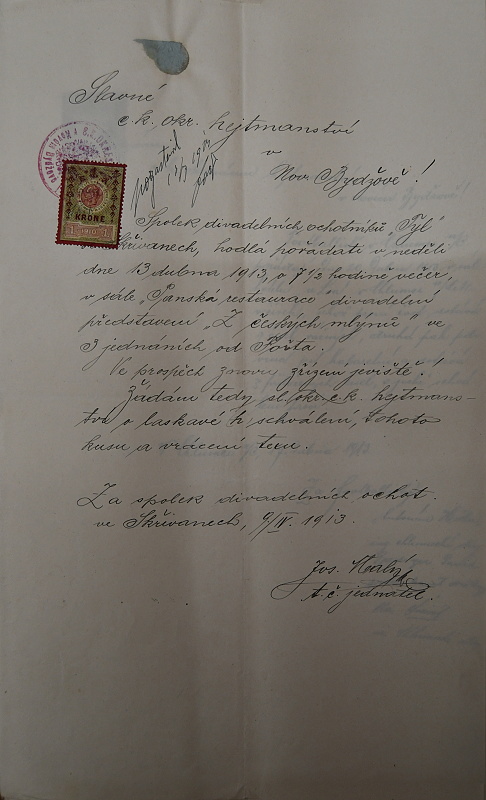 Slavné
c. k. okr. hejtmanství
v
Nov. Bydžově!
KRONE
1 1910 1
Spolek divadelních ochotníků „Tyl"
Skřivanech, hodlá pořádati v neděli
dne 13 dubna 1913, o 7 1/2 hodině večer,
v sále „Panská restaurace" divadelní
představení „Z českých mlýnů" ve
3 jednáních od
Ve prospěch znovu zřízení jeviště!
Žádám tedy, sl. okr. c. k. hejtmans-
tvo o laskavé schválení, tohoto
kusu a vrácení texu.
Za spolek divadelních ochot.
ve Skřivanech, 9/IV. 1913.
Jos.
t. č. jednatel.